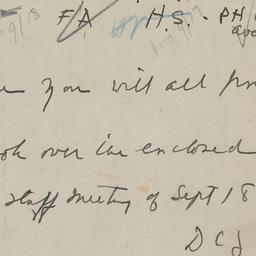 FA H.S. - PH
you will all
over the enclosed
staff meeting of Sept 18
DCJ